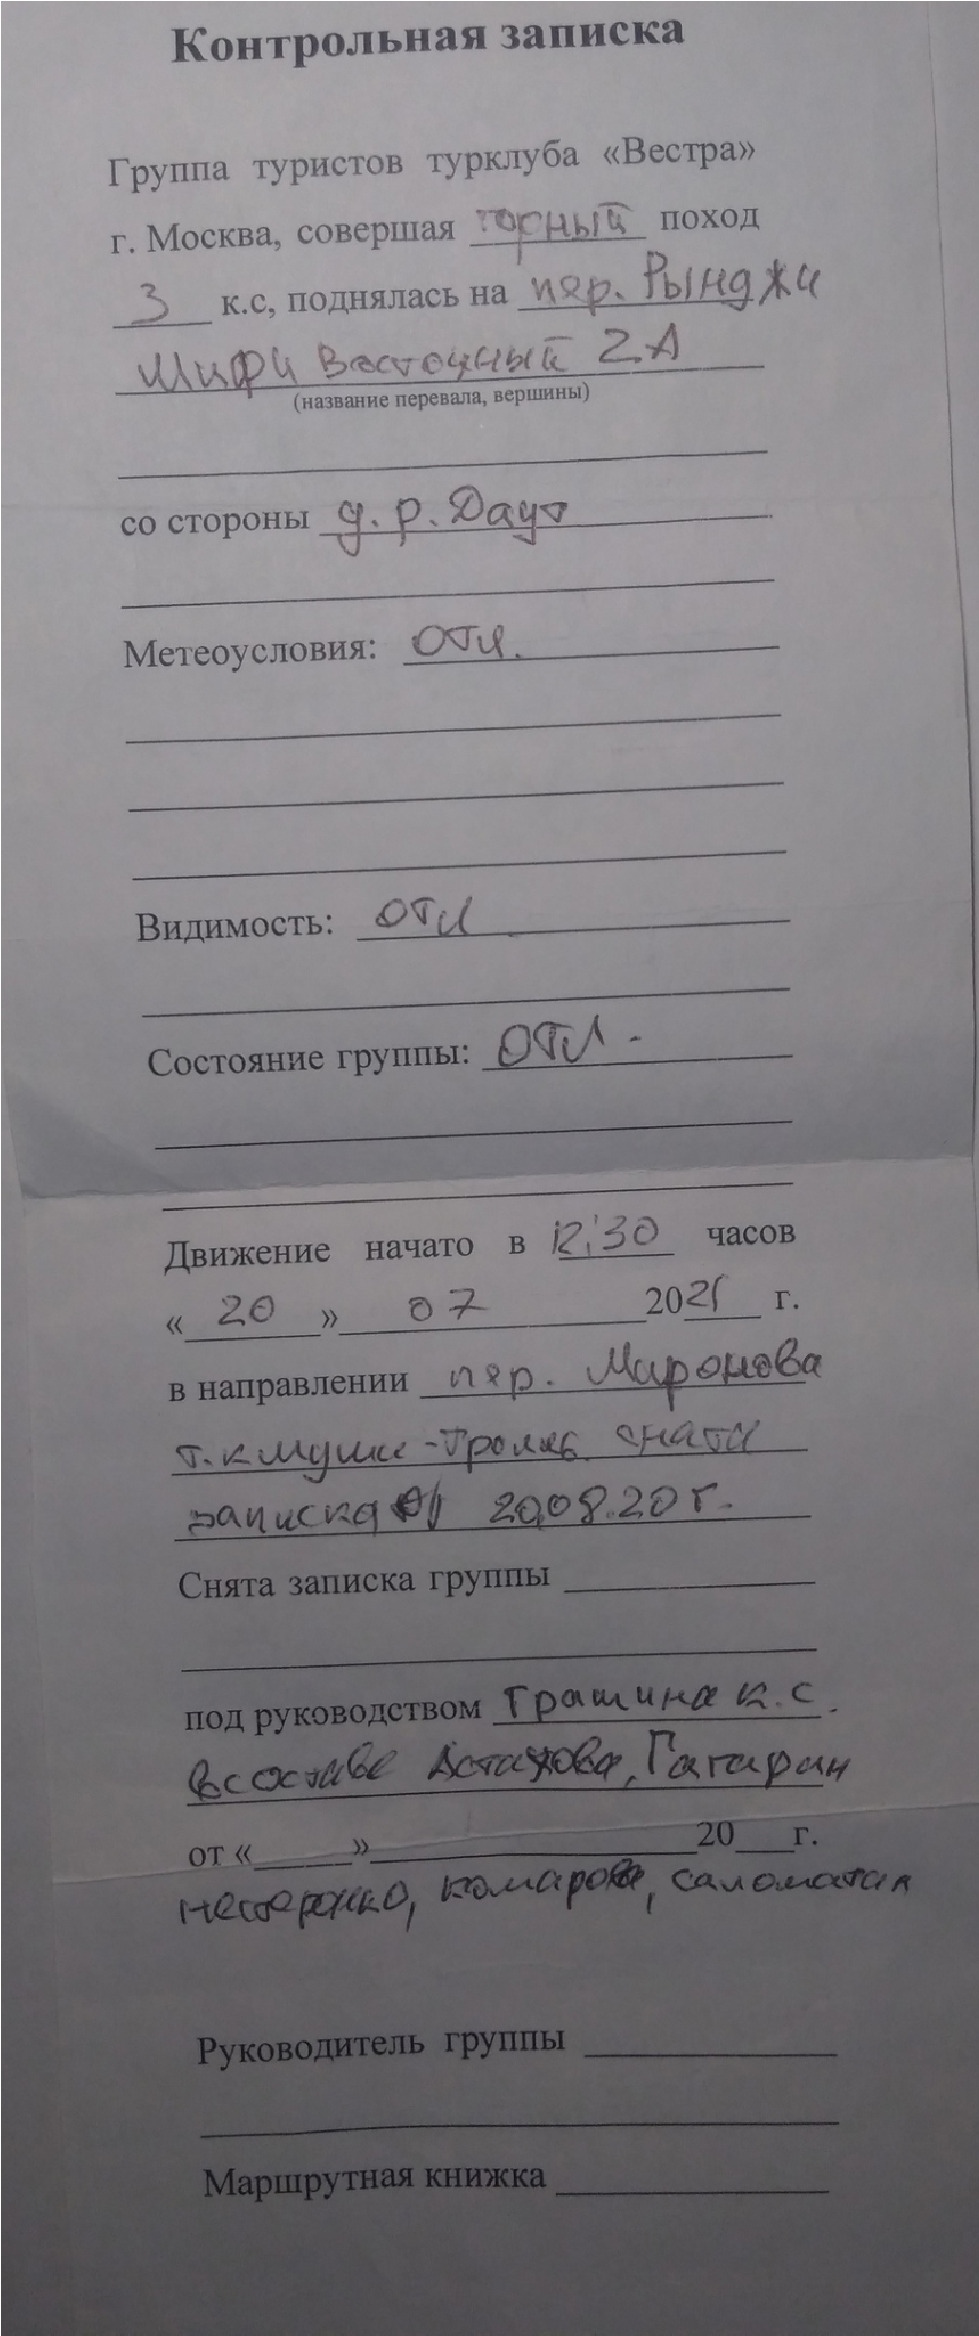 Контрольная записка
Группа туристов турклуба «Вестра»
г. Москва, совершая горный поход
3 к.с, поднялась на пер. Рынджи
Мифи Восточный 2А
(название перевала, вершины)
со стороны д.р. Даут
Метеоусловия: отл.
Видимость: отл
Состояние группы: отл.
Движение начато в 12:30 часов
«20» 07 2021 г.
в направлении пер. Миронова
снята
записка от 20.08.20 г.
Снята записка группы
под руководством Гришина К.С.
в составе Астахова, Гагарин
от «   »    20   г.
Нестеренко, Комарова,
Руководитель группы
Маршрутная книжка